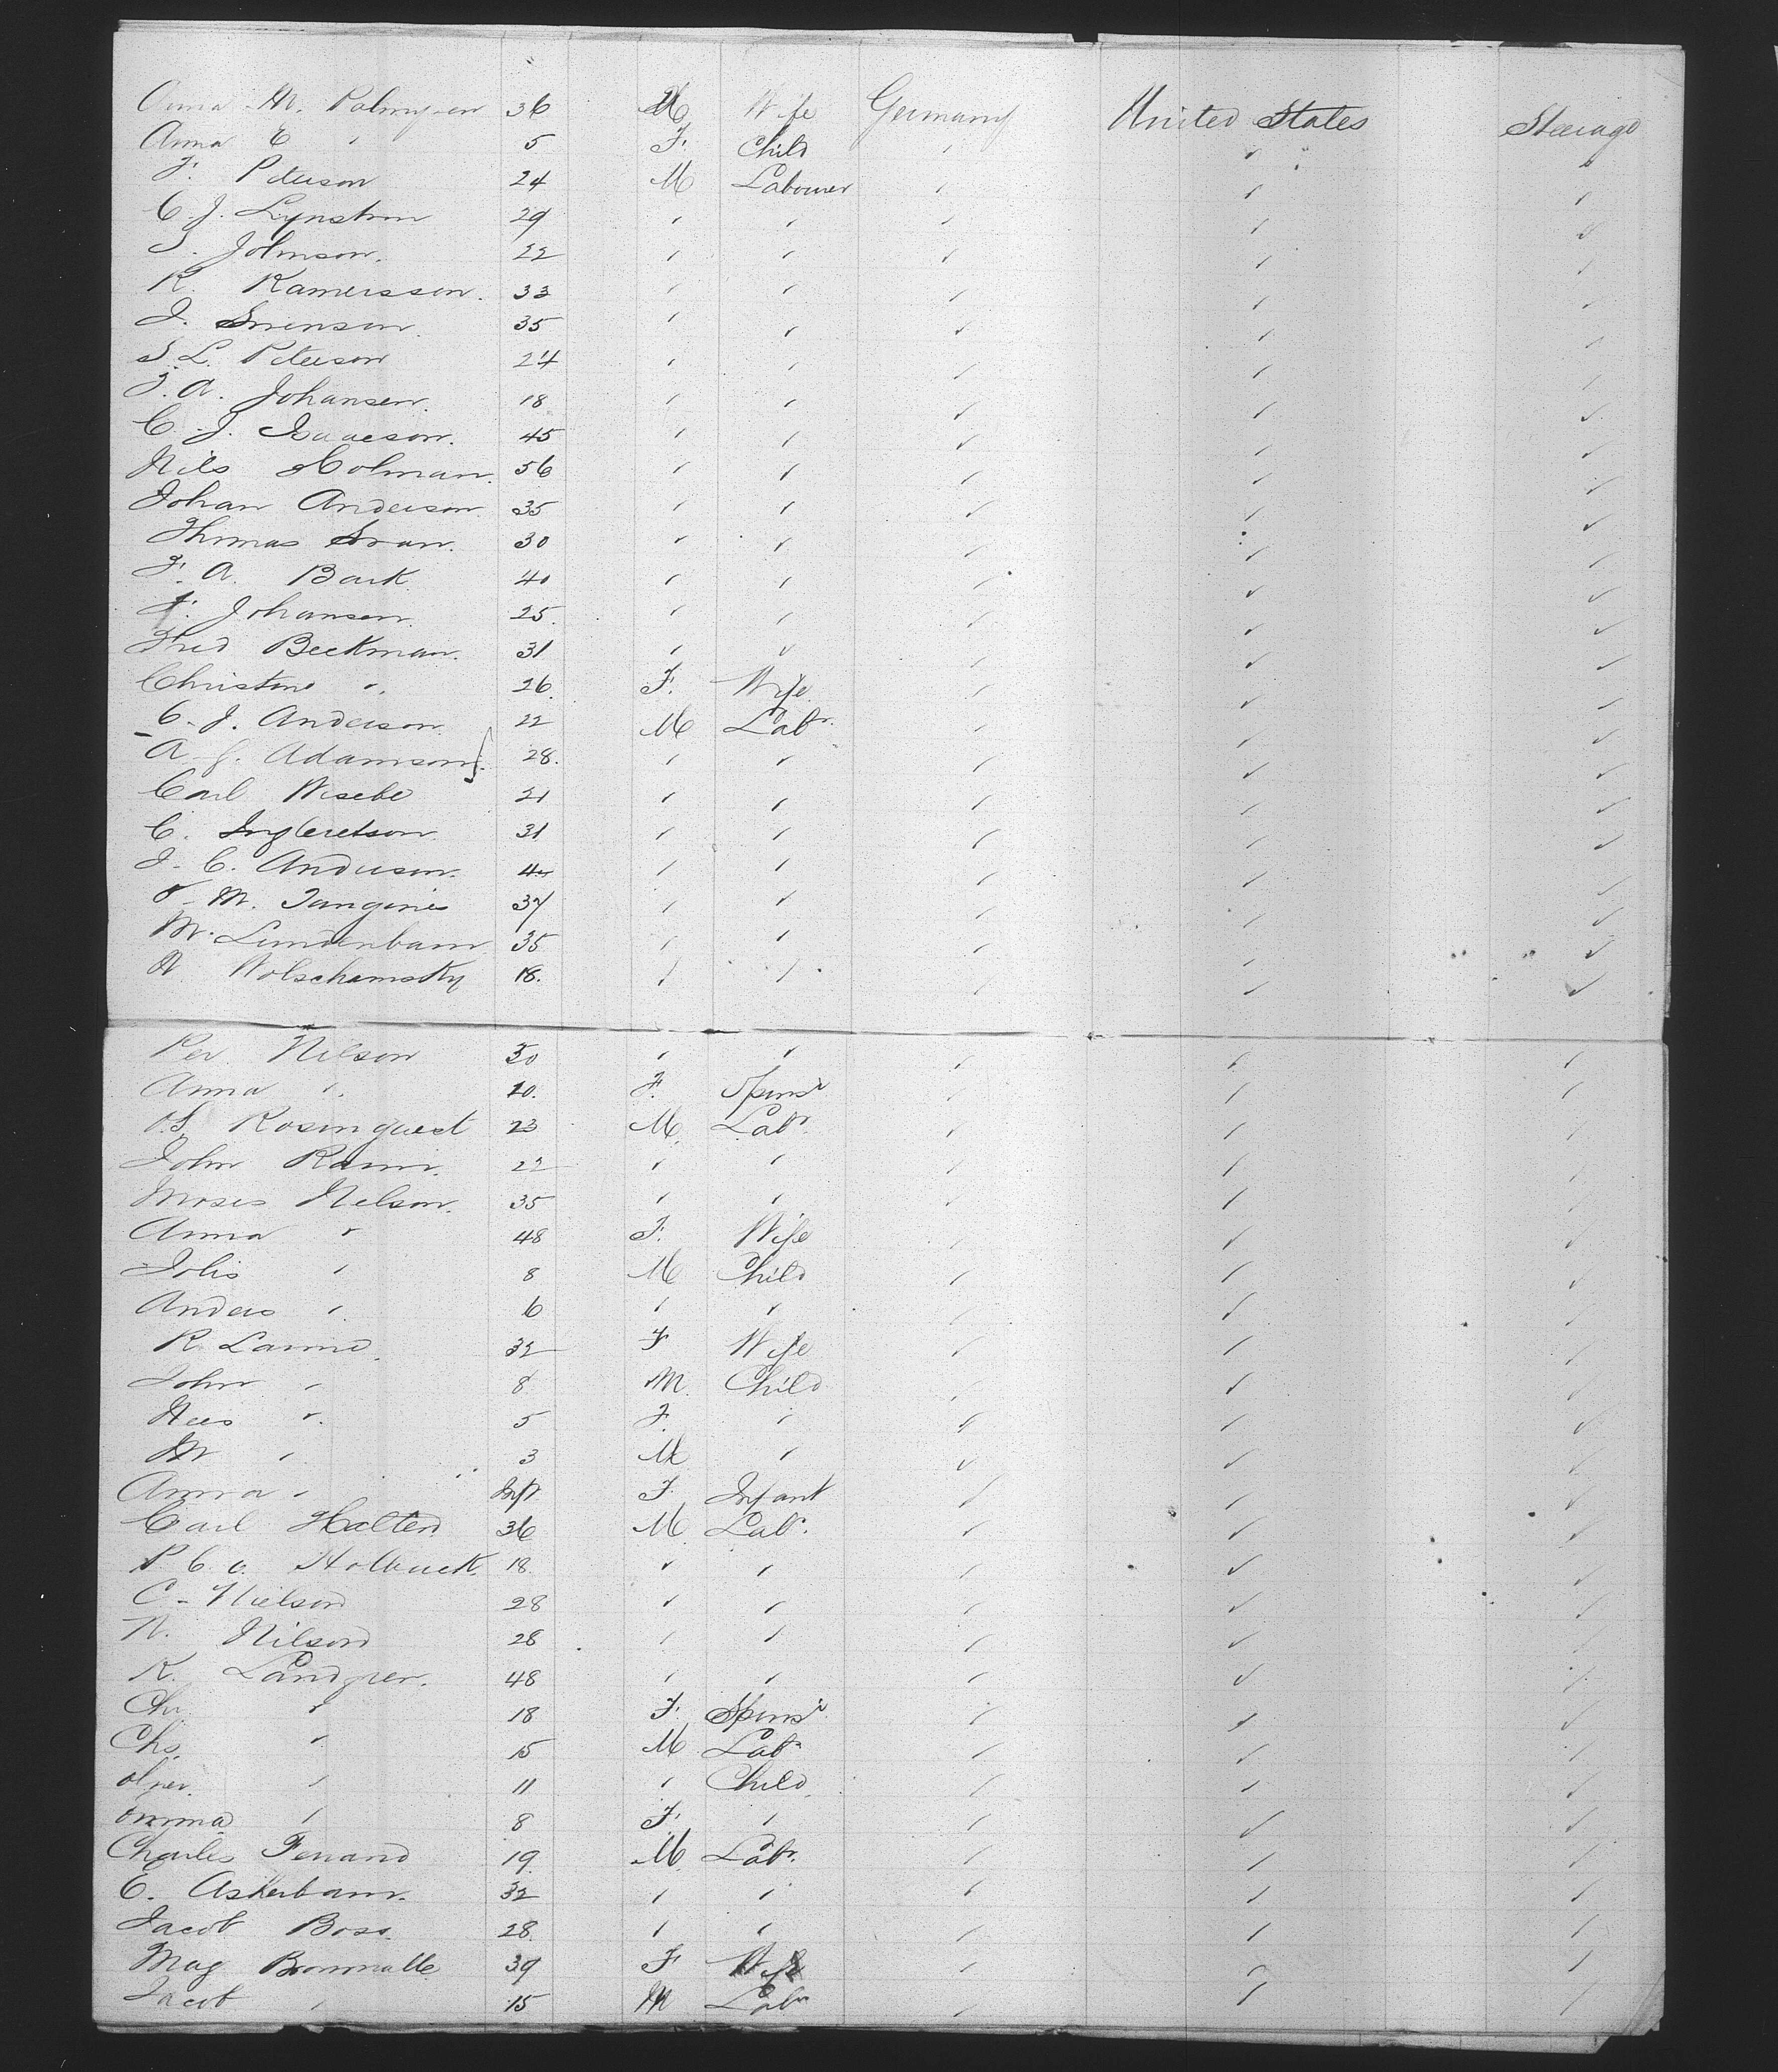 Anna M. Palmgren 36 M Wife Germany United States Steerage
Anna E " 5 F. Child " " "
F. Peterson 24 M Labourer " " "
C. J. Lynstrom 29 " " " " "
S. Johnson. 22 " " " " "
K. Kamersson. 33 " " " " "
J. Swenson 35 " " " " "
S. L. Peterson 24 " " " " "
J. A. Johansen. 18 " " " " "
C. J. Isaacson. 45 " " " " "
Nils Holman. 56 " " " " "
Johan Anderson 35 " " " " "
Thomas Swan. 30 " " " " "
F. A. Bark 40 " " " " "
F. Johansen. 25. " " " " "
Fred Beckman. 31 " " " " "
Christine " 26. F. Wife " " "
C. J. Anderson. 22 M Labr. " " "
A. J. Adamson. 28. " " " " "
Carl Wisebe 21 " " " " "
C. Ingbretson 31 " " " " "
J. C. Anderson. " " " " "
M. 37 " " " " "
M. Lundenbam 35 " " " " "
Wolschamsky 18. " " " " "
Per Nilson 30 " " " " "
Anna " 20. F. Spinsr " " "
Rosinquest 23 M. Labr. " " "
John 22 " " " " "
Moses Nelson. 35 " " " " "
Anna " 48 F. Wife " " "
" 8 M Child " " "
Anders " 6 " " " " "
R. 32 F Wife " " "
John " 8 M. Child " " "
" 5 F. " " " "
M " 3 M " " " "
Anna " Inft F. Infant " " "
Carl Halten 36 M Labr. " " "
P. C. 18. " " " " "
C. Nielson 28 " " " " "
N. Nilson 28 " " " " "
K. Landgren. 48 " " " " "
Chr. " 18 F. Spinsr " " "
Chs. " 15 M Labr " " "
" 11 " Child " " "
Emma " 8 F. " " " "
Charles Ferrand 19. M. Labr. " " "
E. Askerbam. 32 " " " " "
Jacob Boss. 28. " " " " "
Mag 39 F Wife " " "
Jacob " 15 M Labr " " "